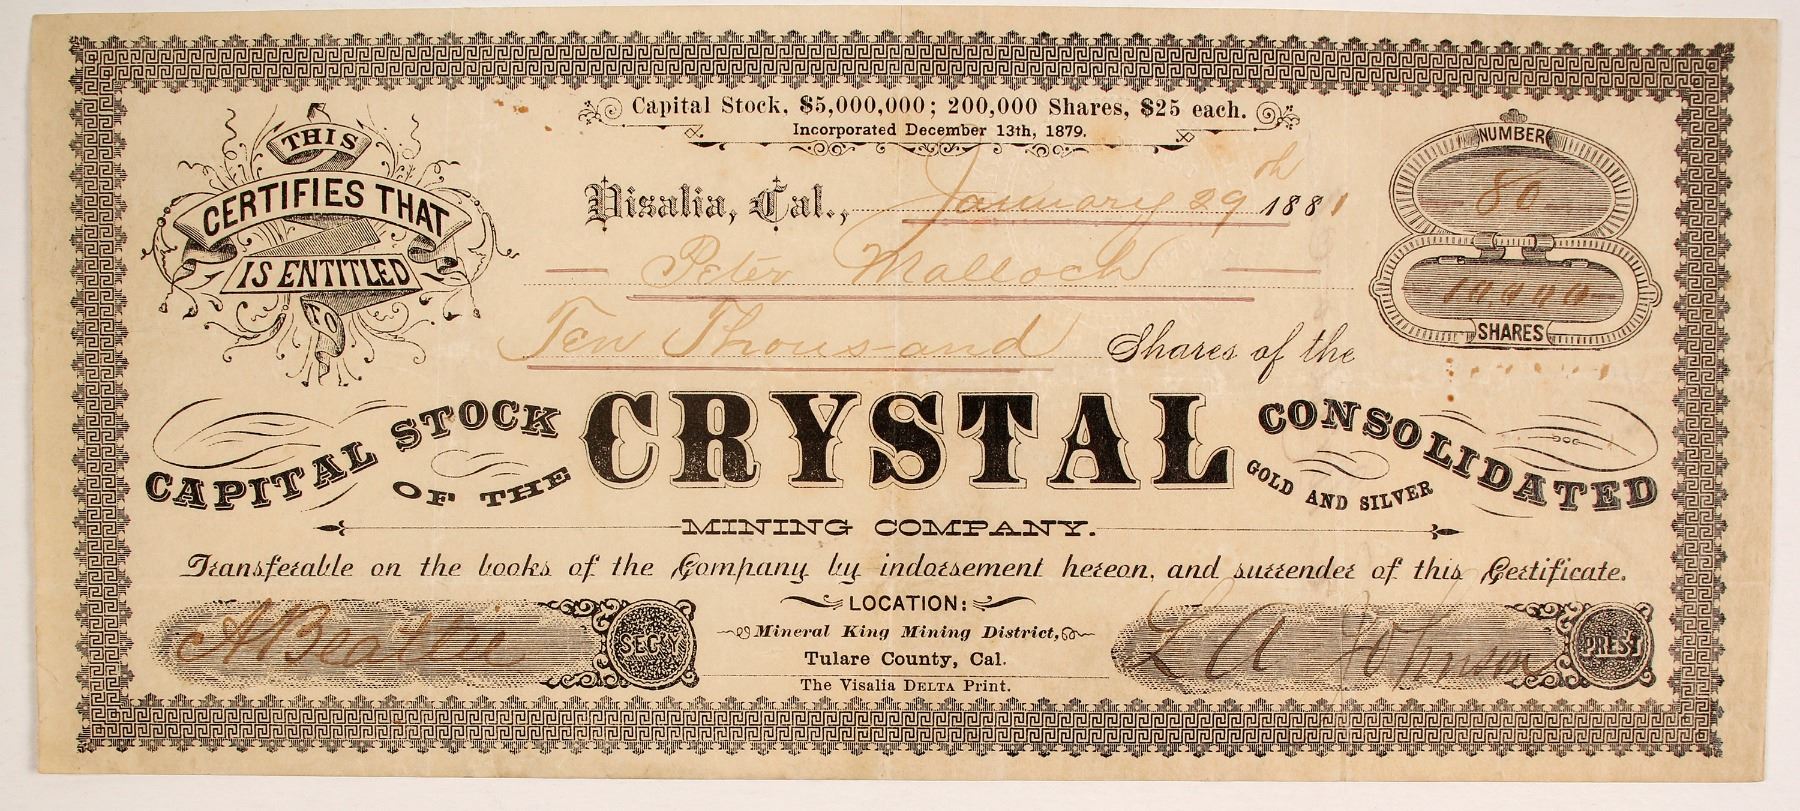 Capital Stock, $5,000,000; 200,000 Shares, $25 each.
Incorporated December 13th, 1879.
THIS
CERTIFIES THAT
IS ENTITLED
TO
Visalia, Cal., January 29th 1881
Peter Malloch
Ten Thousand Shares of the
NUMBER
86
10000
SHARES
CAPITAL STOCK
OF THE
CRYSTAL
CONSOLIDATED
GOLD AND SILVER
MINING COMPANY.
Transferable on the books of the Company by indorsement hereon, and surrender of this Certificate.
A Beattie
SEC'Y
LOCATION:
Mineral King Mining District,
Tulare County, Cal.
The Visalia DELTA Print.
L A Johnson
PREST